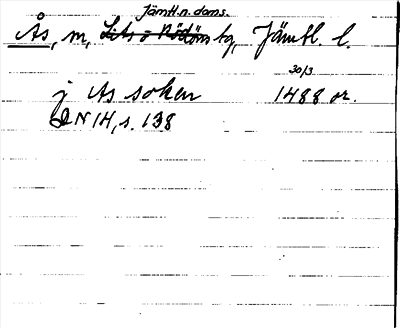 Jämtl.n. doms.
Ås, m, Lits o Rödöns tg, Jämtl. l.
30/3
j As soken 1488 or.
DN 14, s. 138